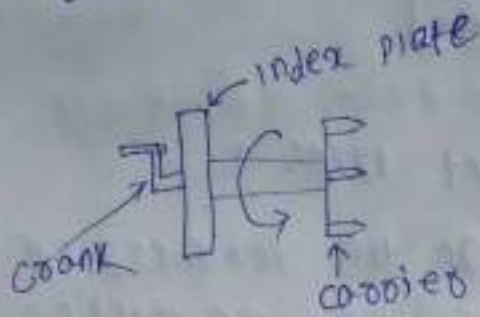 index plate
crank
carrier